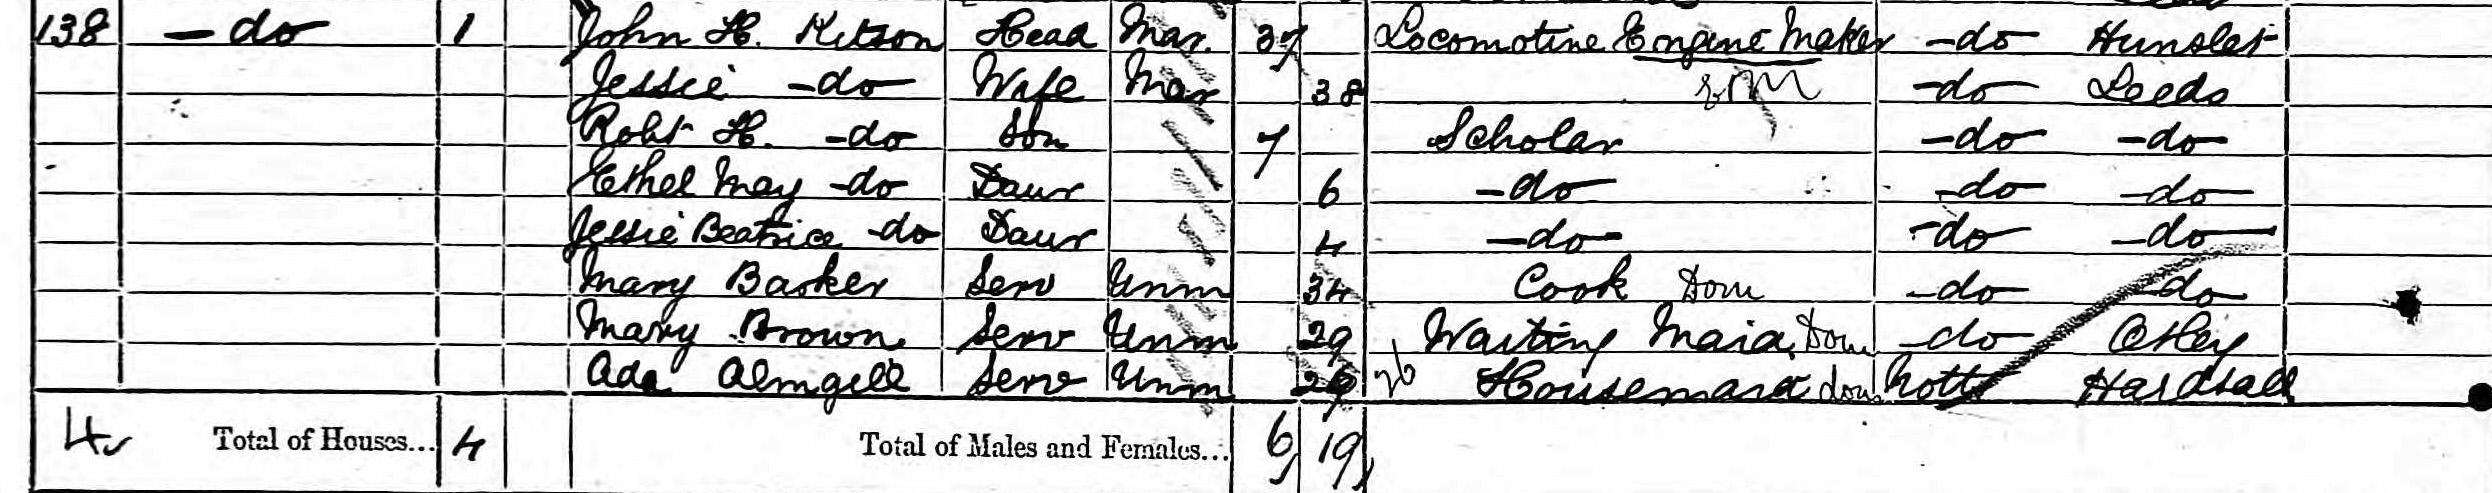 138 - do 1 John H. Kitson Head Mar. 37 Locomotive Engine Maker - do Hunslet
Jessie - do Wife Mar 38 - do Leeds
Robt H. - do Son 7 Scholar - do - do
Ethel May - do Daur 6 - do - do - do
Jessie Beatrice - do Daur 4 - do - do - do
Mary Barker Serv Unm 34 Cook Dom - do - do
Mary Brown Serv Unm 29 Waiting Maid Dom - do Otley
Ada Almgill Serv Unm 26 Housemaid dom Notts
4 Total of Houses... 4 Total of Males and Females... 6 19